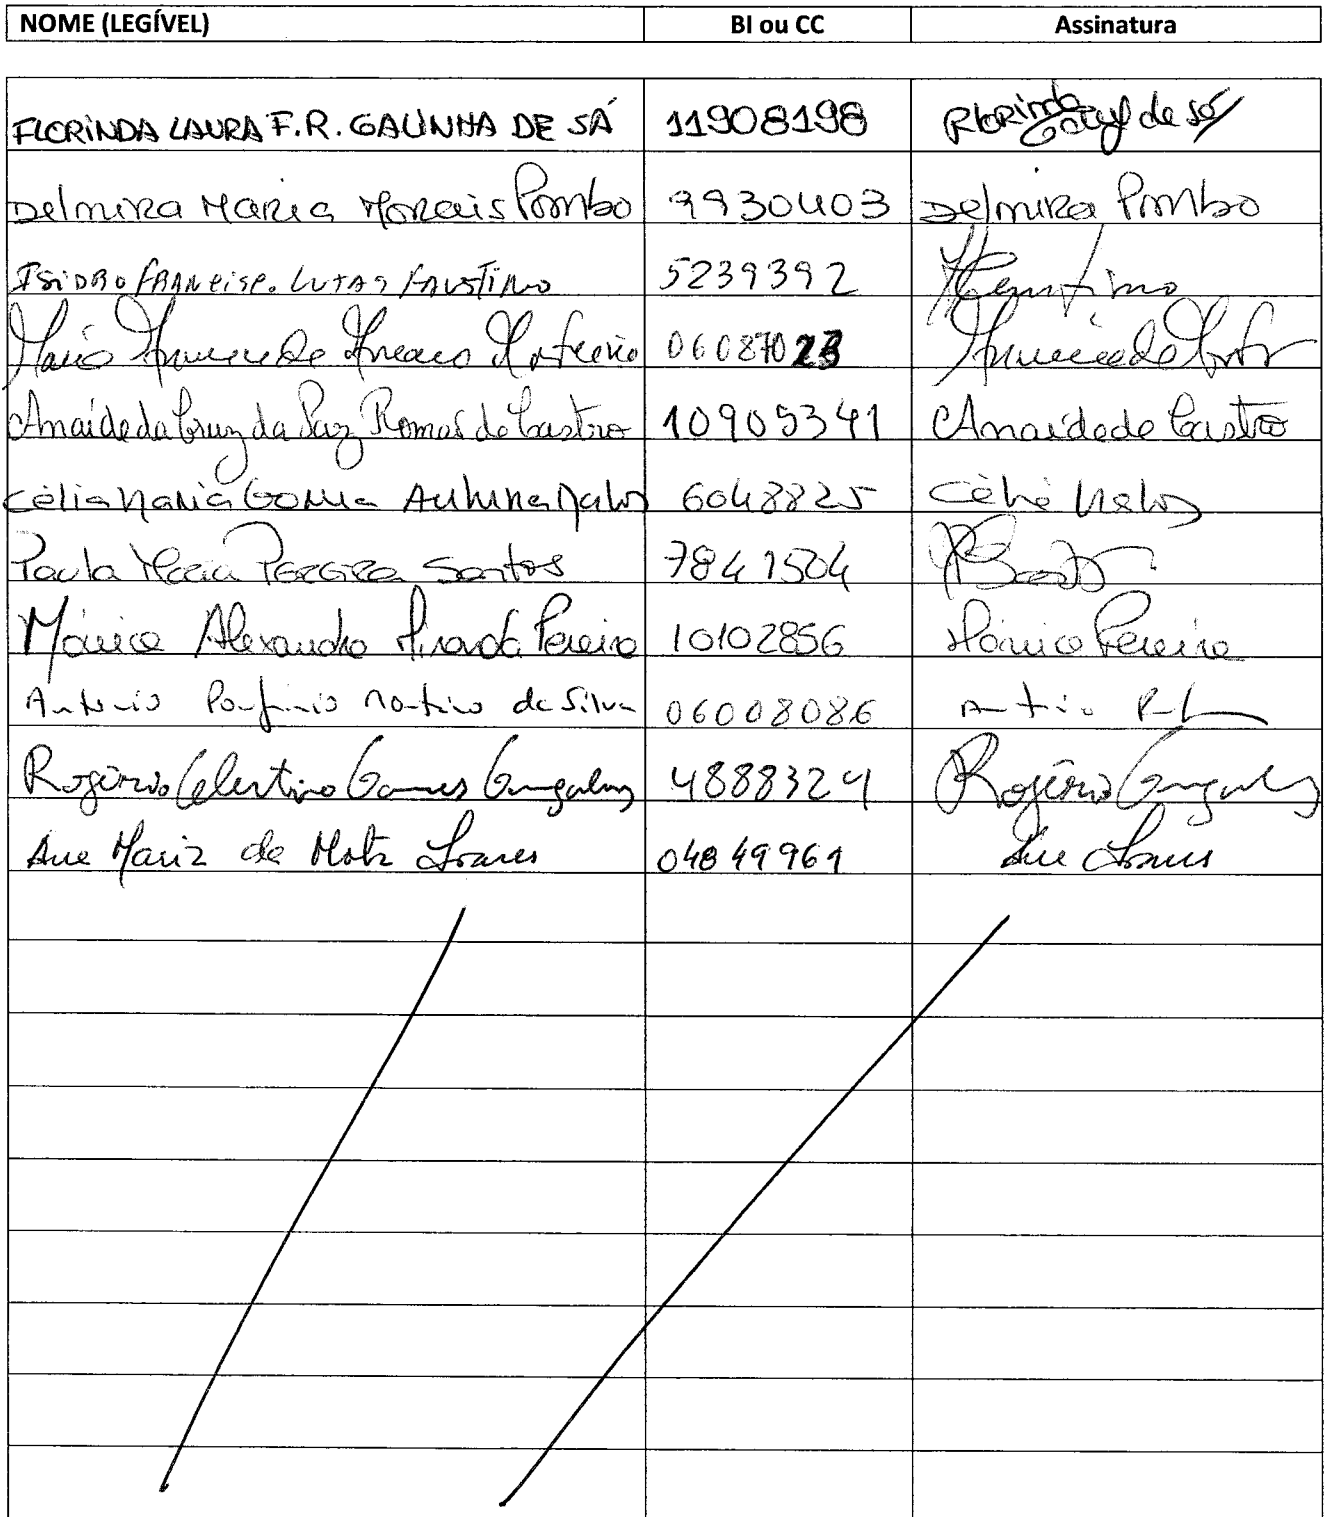 NOME (LEGÍVEL) BI ou CC Assinatura
FLORINDA LAURA F.R. GALINHA DE SÁ 11908198 Florinda de Sá
Delmira Maria Morais Pombo 9930403 Delmira Pombo
ISIDRO FRANCISCO LUTAS FAUSTINO 5239392 Faustino
Mário 06087023
Anaíde da Cruz da Paz Ramos de Castro 10905341 Anaíde de Castro
Célia Maria Gouveia Antunes Matos 6048825 Célia Matos
Paula Maria Pereira Santos 7841504
Mónica Alexandra Miranda Pereira 10102856 Mónica Pereira
António Porfírio Martins da Silva 06008086 António
Rogério Celestino Gomes Gonçalves 4888324 Rogério Gonçalves
Ana Maria da Mota Soares 04849961 Ana Soares